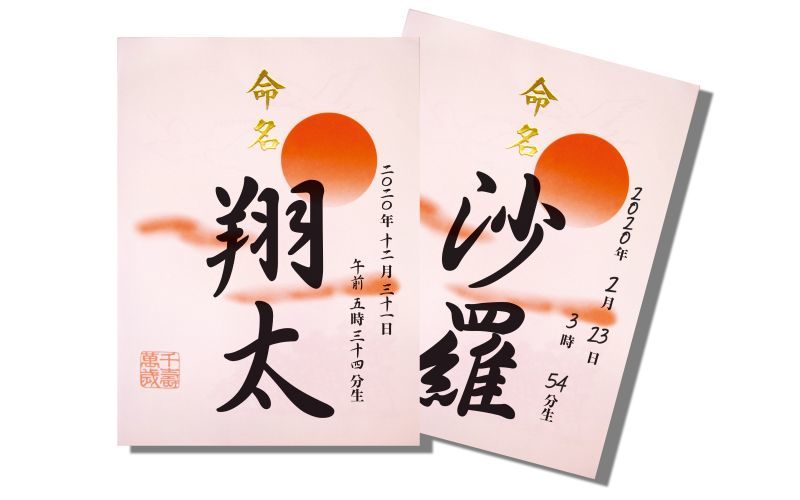 命名
翔太
二〇二〇年十二月三十一日
午前五時三十四分生
千壽
萬歳
命名
沙羅
2020年2月23日
3時54分生